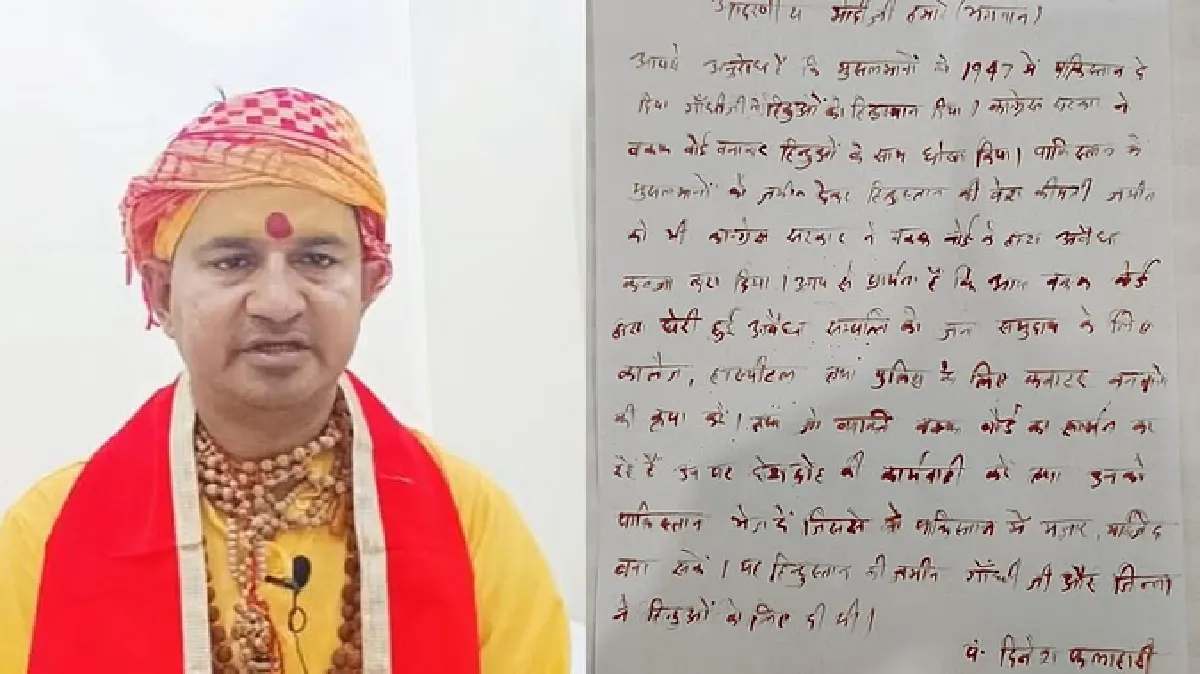 आदरणीय मोदी जी हमारे (भगवान)
आपसे अनुरोध है कि मुसलमानों को 1947 में पाकिस्तान दे
दिया गाँधीजी ने हिन्दुओं को हिन्दुस्थान दिया। कांग्रेस सरकार ने
वक्फ बोर्ड बनाकर हिन्दुओं के साथ धोखा दिया। पाकिस्तान के
मुसलमानों को जमीन देकर हिन्दुस्तान की वेश कीमती जमीन
को भी कांग्रेस सरकार ने वक्फ बोर्ड के द्वारा अवैध
कब्जा करा दिया। आप से प्रार्थना है कि आप वक्फ बोर्ड
द्वारा घेरी हुई अवैध सम्पत्ति को जन समुदाय के लिए
कालेज, हास्पीटल तथा पुलिस के लिए क्वाटर बनवाने
की कृपा करें। तथा जो व्यक्ति वक्फ बोर्ड का समर्थन कर
रहे हैं उन पर देशद्रोह की कार्यवाही करें तथा उनको
पाकिस्तान भेज दें जिससे वो पाकिस्तान में मजार, मस्जिद
बना सकें। यह हिन्दुस्तान की जमीन गाँधी जी और जिन्ना
ने हिन्दुओं के लिए दी थी।
पं. दिनेश फलाहारी